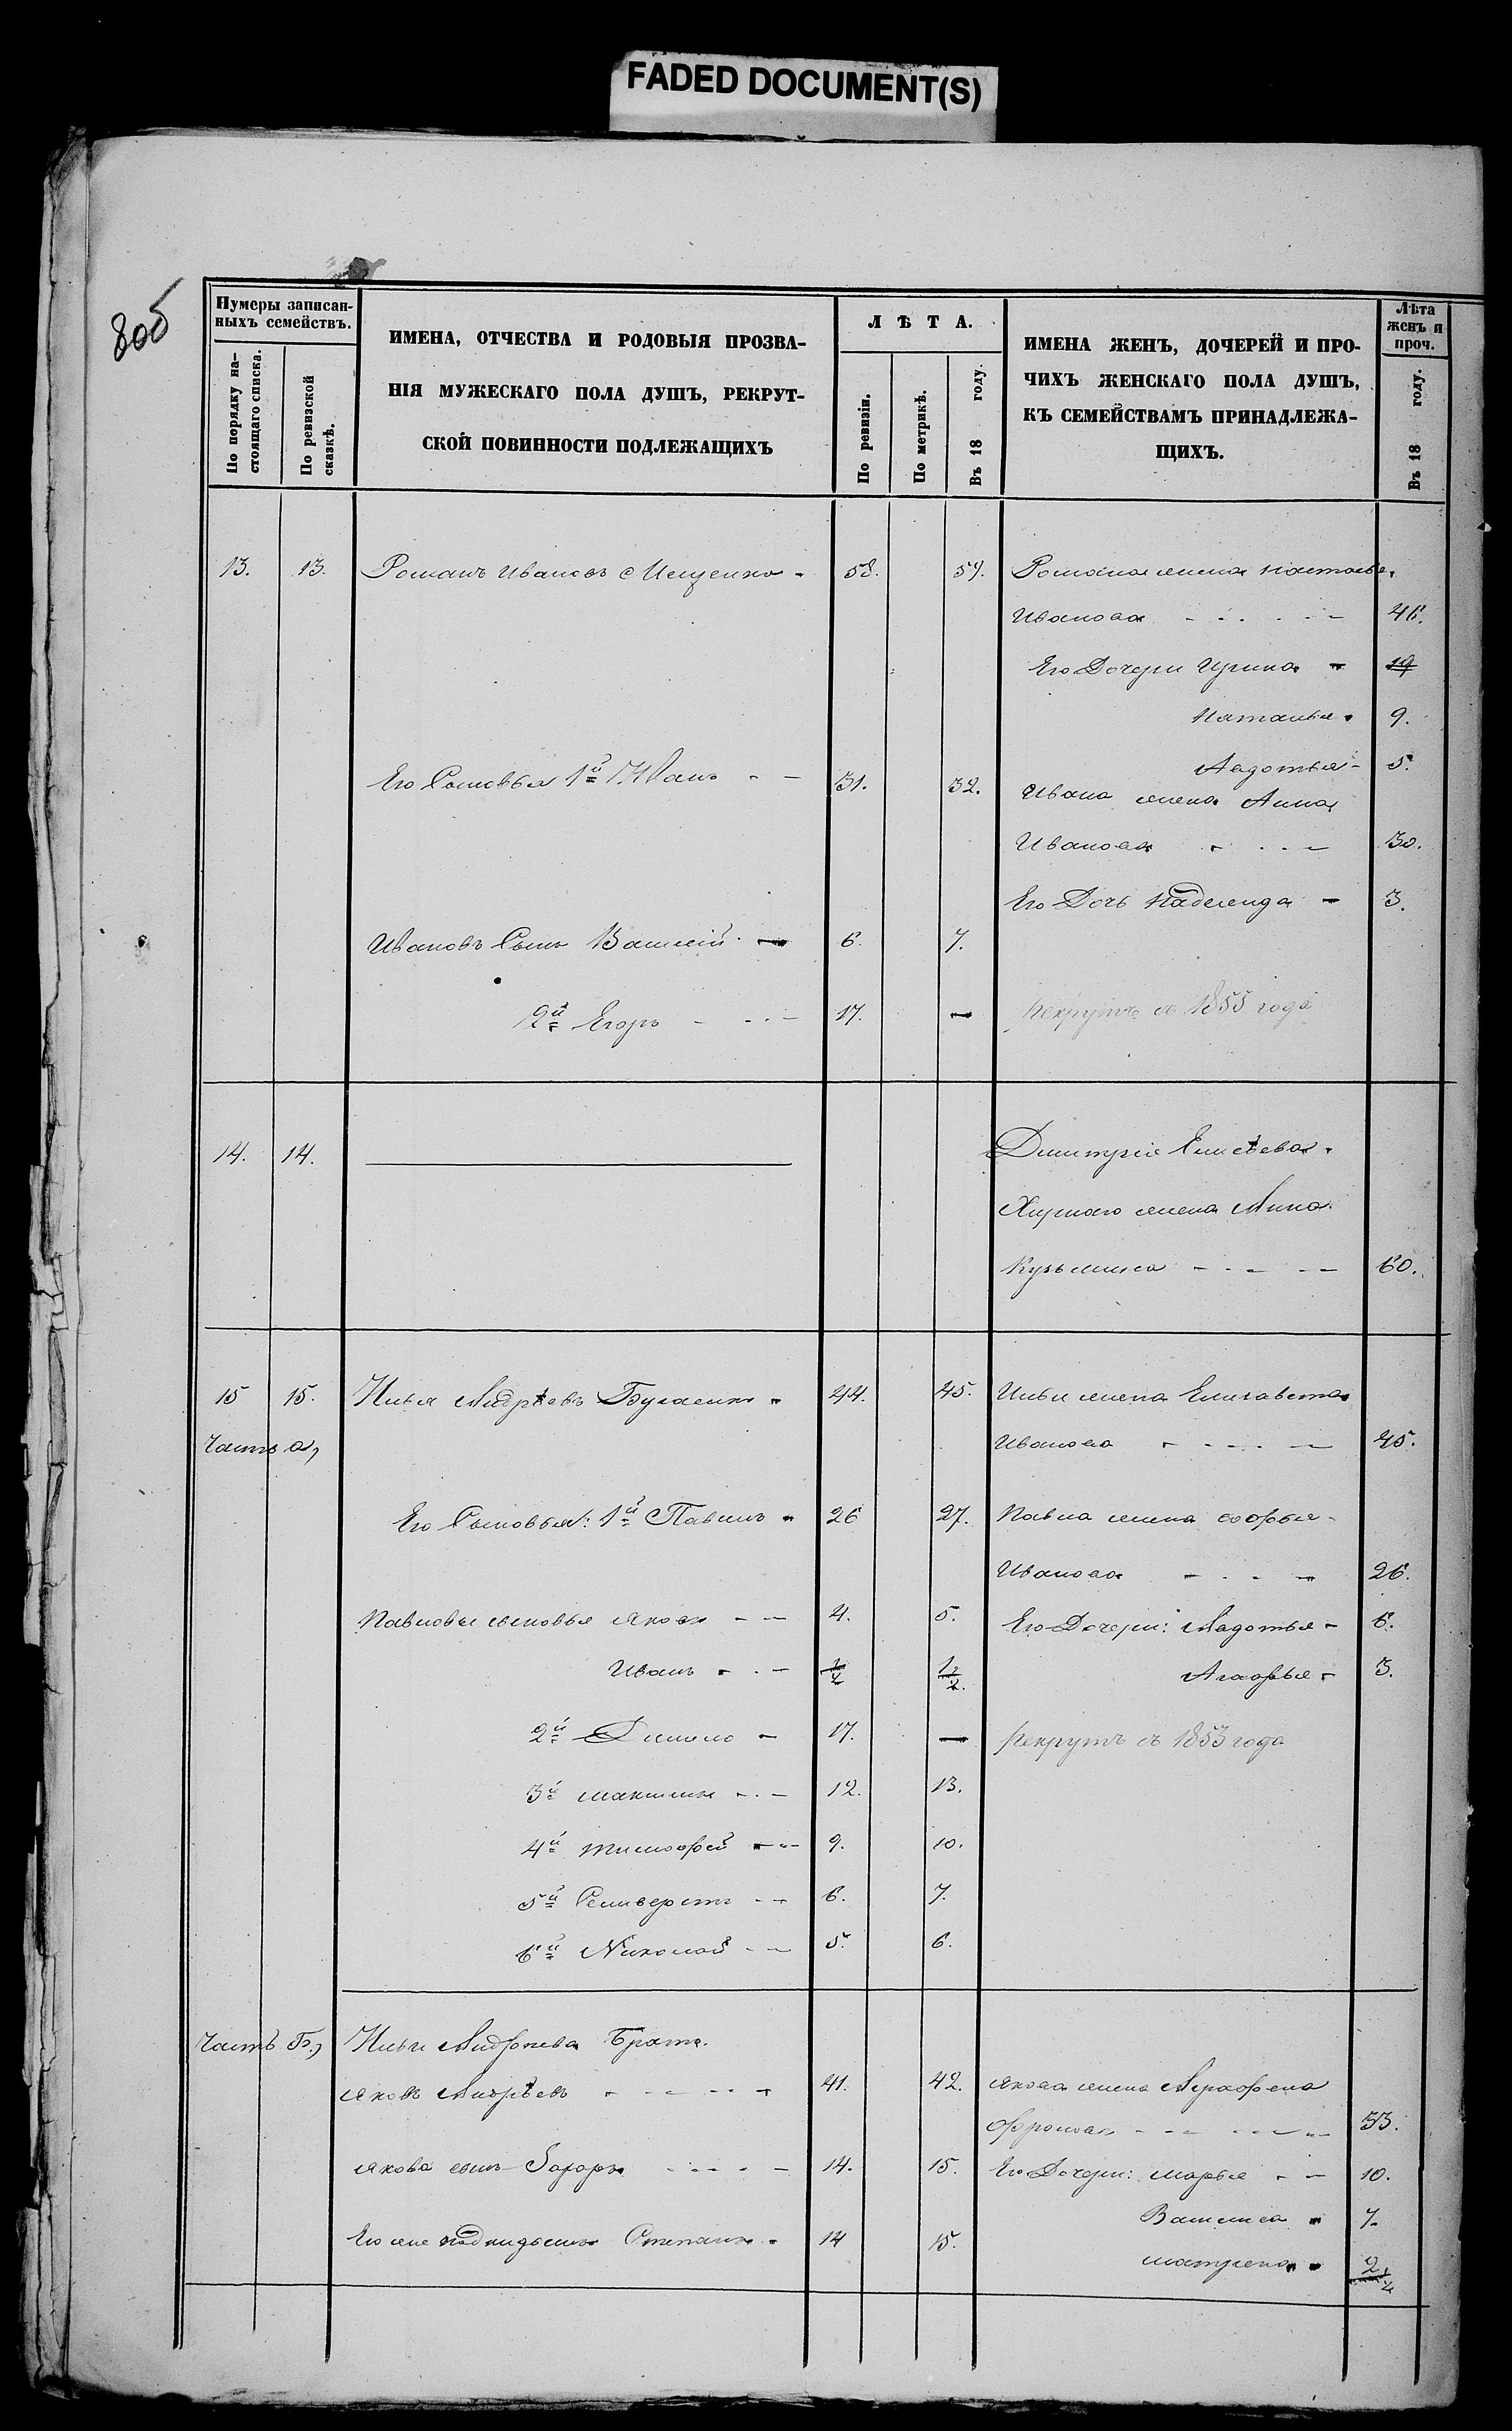 FADED DOCUMENT(S)
80б
Нумеры записан-
ныхъ семействъ.
По порядку на-
стоящаго списка.
По ревизской
сказкѣ.
ИМЕНА, ОТЧЕСТВА И РОДОВЫЯ ПРОЗВА-
НІЯ МУЖЕСКАГО ПОЛА ДУШЪ, РЕКРУТ-
СКОЙ ПОВИННОСТИ ПОДЛЕЖАЩИХЪ
Л Ѣ Т А.
По ревизіи.
По метрикѣ.
Въ 18 году.
ИМЕНА ЖЕНЪ, ДОЧЕРЕЙ И ПРО-
ЧИХЪ ЖЕНСКАГО ПОЛА ДУШЪ,
КЪ СЕМЕЙСТВАМЪ ПРИНАДЛЕЖА-
ЩИХЪ.
Лѣта
женъ и
проч.
Въ 18 году.
13. 13. Романъ Ивановъ Мещенко 58. 59. Романа жена Настасья
Иванова 46.
Его Дочери Ирина 19
Наталья 9.
Авдотья 5.
Его Сыновья 1й Иванъ 31. 32. Ивана жена Анна
Иванова 30.
Его Дочь Надежда 3.
Ивановъ Сынъ Василій 6. 7.
2й Егоръ 17. — рекрутъ съ 1855 года
14. 14. Димитрія Елисѣева
жена Анна
Кузьмина 60.
15 15. Илья Андрѣевъ 44. 45. Ильи жена Елисавета
Часть а, Иванова 45.
Его Сыновья: 1й Павелъ 26 27. Павла жена Софья
Иванова 26.
Павловы сыновья Яковъ 4. 5. Его Дочери: Авдотья 6.
Иванъ 1/4 1 1/2. Агафья 3.
2й Данило 17. — рекрутъ съ 1853 года
3й Максимъ 12. 13.
4й Тимофей 9. 10.
5й Селиверстъ 6. 7.
6й Николай 5. 6.
Часть Б, Ильи Андрѣева Братъ
Яковъ Андрѣевъ 41. 42. Якова жена Аграфена
33.
Якова сынъ Захаръ 14. 15. Его Дочери: Марья 10.
Василиса 7.
Его же подкидышъ Степанъ 14 15.
Матрена 2 1/4